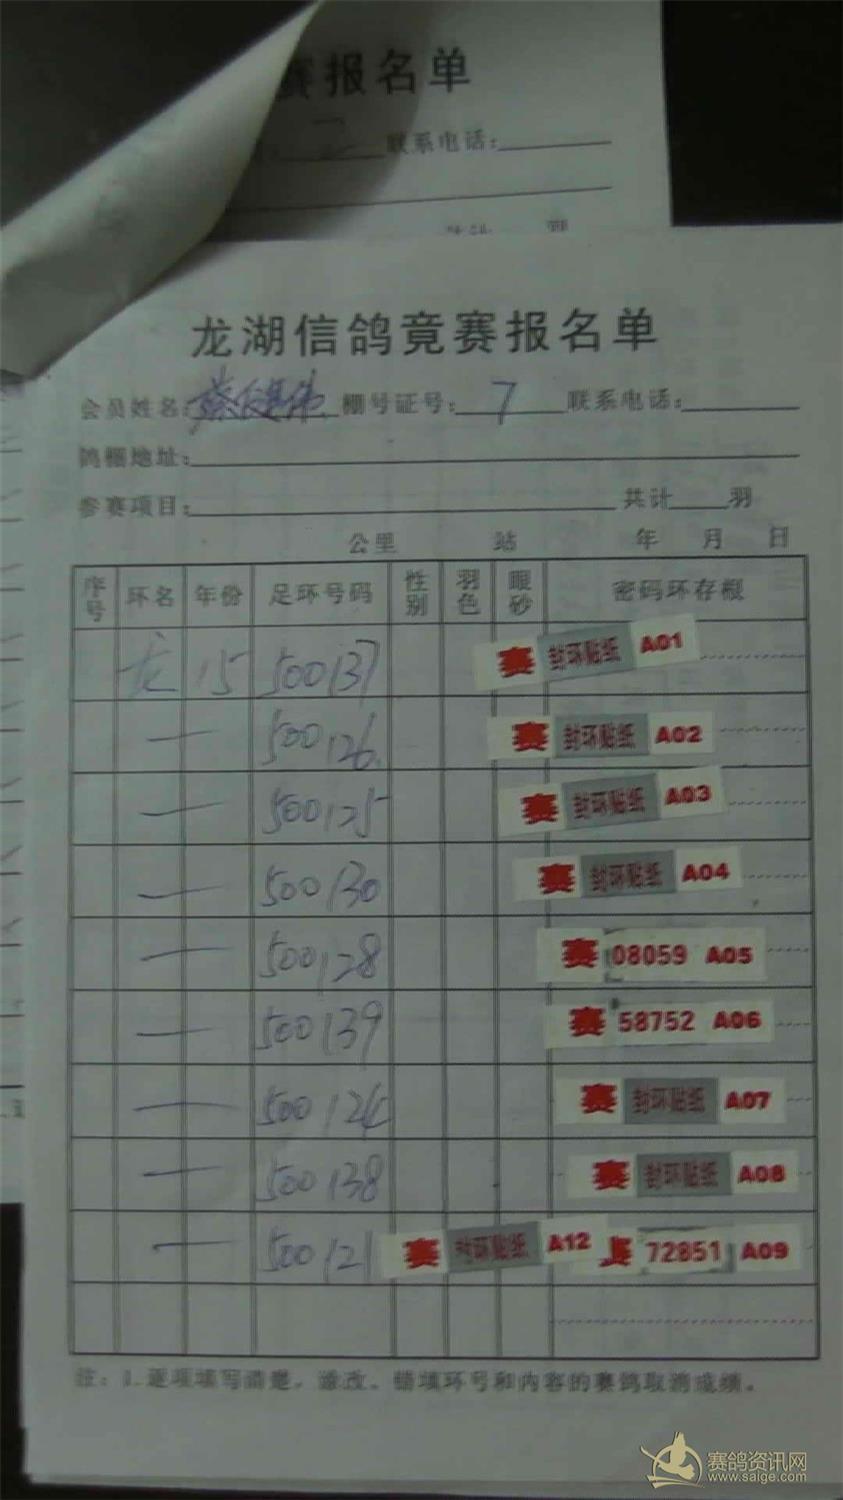 赛报名单
联系电话:
龙湖信鸽竟赛报名单
会员姓名: 蔡健伟 棚号证号: 7 联系电话:
鸽棚地址:
参赛项目: 共计 羽
公里 站 年 月 日
序号 环名 年份 足环号码 性别 羽色 眼砂 密码环存根
龙 15 500137 赛 封环贴纸 A01
一 500126 赛 封环贴纸 A02
一 500125 赛 封环贴纸 A03
一 500130 赛 封环贴纸 A04
一 500128 赛 08059 A05
一 500139 赛 58752 A06
一 500124 赛 封环贴纸 A07
一 500138 赛 封环贴纸 A08
一 500121 赛 封环贴纸 A12 赛 72851 A09
注:1.逐项填写清楚,涂改、错填环号和内容的赛鸽取消成绩。
赛鸽资讯网
www.saige.com